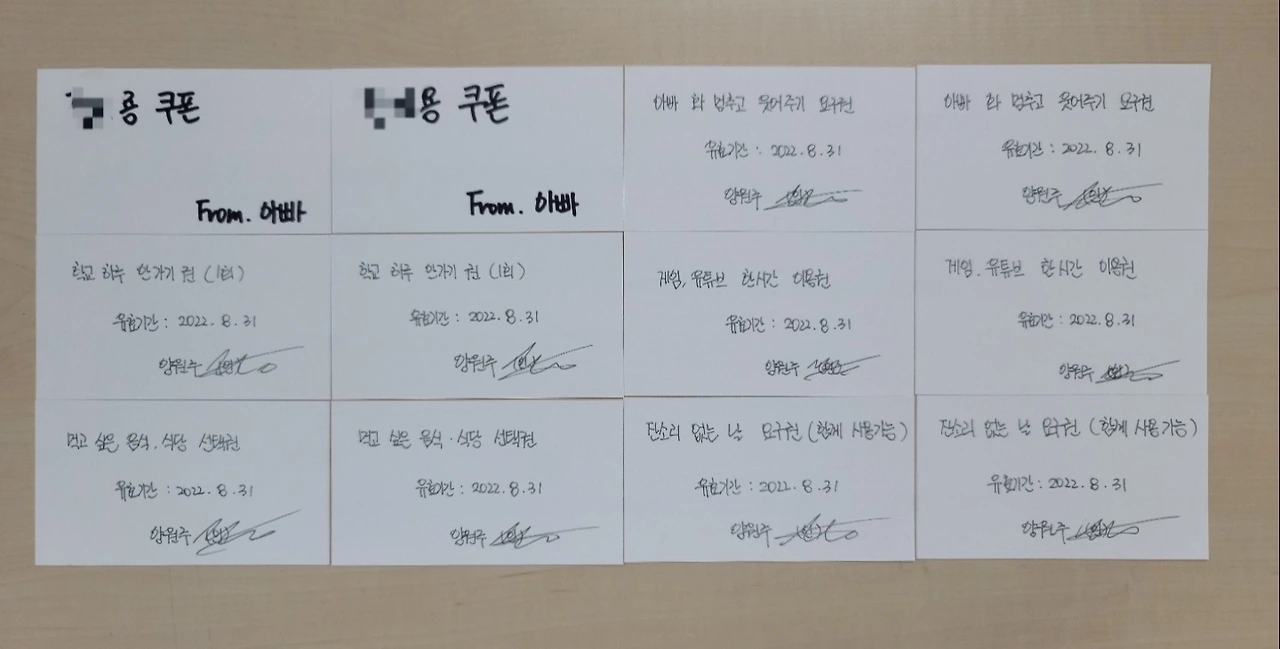 용 쿠폰
From. 아빠
용 쿠폰
From. 아빠
아빠 화 멈추고 웃어주기 요구권
유효기간 : 2022. 8. 31
양원주
아빠 화 멈추고 웃어주기 요구권
유효기간 : 2022. 8. 31
양원주
학교 하루 안가기 권 (1회)
유효기간 : 2022. 8. 31
양원주
학교 하루 안가기 권 (1회)
유효기간 : 2022. 8. 31
양원주
게임, 유튜브 한시간 이용권
유효기간 : 2022. 8. 31
양원주
게임, 유튜브 한시간 이용권
유효기간 : 2022. 8. 31
양원주
먹고 싶은 음식·식당 선택권
유효기간 : 2022. 8. 31
양원주
먹고 싶은 음식·식당 선택권
유효기간 : 2022. 8. 31
양원주
잔소리 없는 날 요구권 (함께 사용가능)
유효기간 : 2022. 8. 31
양원주
잔소리 없는 날 요구권 (함께 사용가능)
유효기간 : 2022. 8. 31
양원주